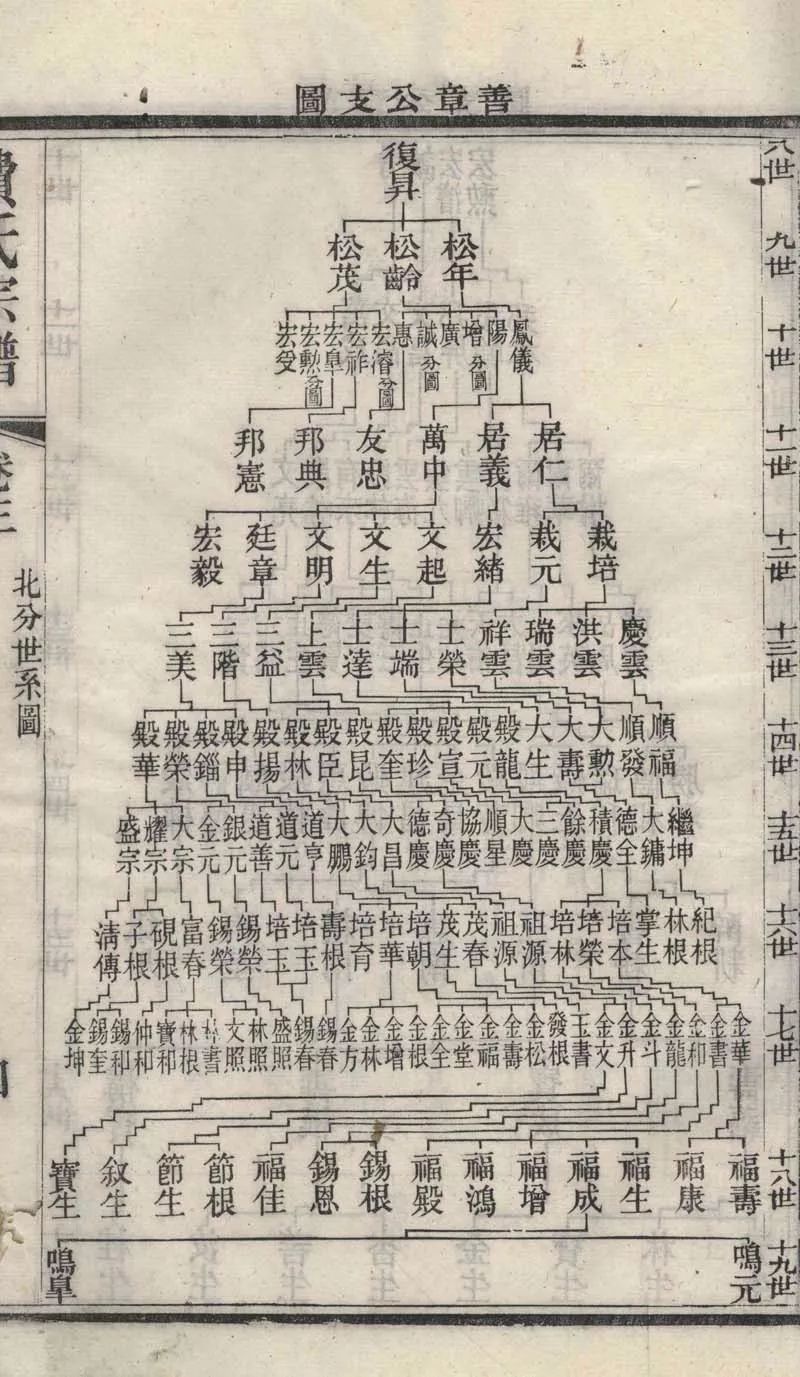 善章公支圖
八世 復昇
九世 松年 松齡 松茂
十世 鳳儀 陽 增分圖 廣 誠分圖 惠 宏濬分圖 宏祚 宏阜 宏勲分圖 宏受
十一世 居仁 居義 萬中 友忠 邦典 邦憲
十二世 栽培 栽元 宏緒 文起 文生 文明 廷章 宏毅
十三世 慶雲 洪雲 瑞雲 祥雲 士榮 士端 士達 上雲 三益 三階 三美
十四世 順福 順發 大勲 大壽 大生 殿龍 殿元 殿宣 殿珍 殿奎 殿昆 殿臣 殿林 殿揚 殿申 殿錙 殿榮 殿華
十五世 繼坤 大鏞 德全 積慶 餘慶 三慶 大慶 順星 協慶 奇慶 德慶 大昌 大鈞 大鵬 道亨 道元 道善 銀元 金元 大宗 耀宗 盛宗
十六世 紀根 林根 掌生 培本 培榮 培林 祖源 祖源 茂春 茂生 培朝 培華 培育 壽根 培玉 培玉 錫榮 錫榮 富春 硯根 子根 清傳
十七世 金華 金書 金和 金龍 金斗 金升 金文 玉書 發根 金松 金壽 金福 金堂 金全 金根 金增 金林 金方 錫春 錫春 盛照 林照 文照 書 林根 寶和 仲和 錫和 錫奎 金坤
十八世 福壽 福康 福生 福成 福增 福鴻 福殿 錫根 錫恩 福佳 節根 節生 敘生 寶生
十九世 鳴元 鳴皐
費氏宗譜
卷三
北分世系圖